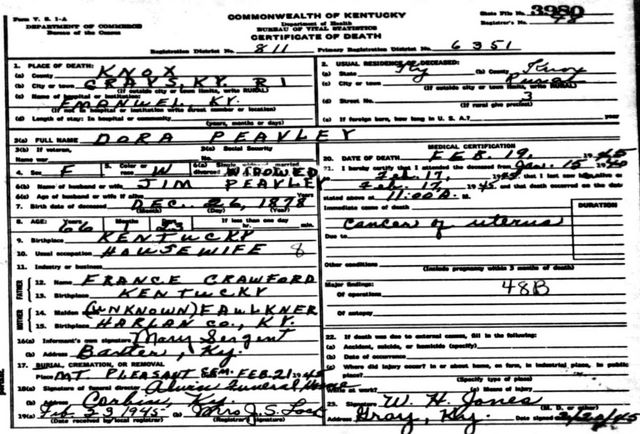 Form V. S. 1-A
DEPARTMENT OF COMMERCE
Bureau of the Census
COMMONWEALTH OF KENTUCKY
Department of Health
BUREAU OF VITAL STATISTICS
CERTIFICATE OF DEATH
State File No. 3980
Registrar's No. 48
Registration District No. 811 Primary Registration District No. 6351
1. PLACE OF DEATH:
(a) County KNOX
(b) City or town GRAYS, KY. R1
(If outside city or town limits, write RURAL)
(c) Name of hospital or institution:
EMANUEL KY.
(If not in hospital or institution write street number or location)
(d) Length of stay: In hospital or community
(years, months or days)
2. USUAL RESIDENCE OF DECEASED:
(a) State Ky (b) County Knox
(c) City or town Rural
(If outside city or town limits, write RURAL)
(d) Street No. 3
(If rural give precinct)
(e) If foreign born, how long in U. S. A.? years
3(a) FULL NAME DORA PEAVLEY
3(b) If veteran,
Name war
3(c) Social Security
No.
4. Sex F 5. Color or race W 6(a) divorced WIDOWED
6(b) Name of husband or wife JIM PEAVLEY
6(c) Age of husband or wife if alive Years
7. Birth date of deceased DEC. 26, 1878
(Month) (Day) (Year)
8. AGE: Years 66 Months 1 Days 23 If less than one day
hr. min.
9. Birthplace KENTUCKY
10. Usual occupation HOUSEWIFE 8
11. Industry or business
FATHER
12. Name FRANCE CRAWFORD
13. Birthplace KENTUCKY
MOTHER
14. Maiden (UNKNOWN) FAULKNER
15. Birthplace HARLAN CO., KY.
16(a) Informant's own signature Mary Sergent
(b) Address Baxter, Ky.
17. BURIAL, CREMATION, OR REMOVAL
Place MT PLEASANT CEM. FEB. 21 1945
18(a) Signature of funeral director Funeral Home
(b) Address Corbin, Ky.
19(a) Feb. 23 1945 (b) Mrs J. S.
(Date received by local registrar) (Registrar's signature)
MEDICAL CERTIFICATION
20. DATE OF DEATH FEB. 19, 1945
21. I hereby certify that I attended the deceased from Jan. 15
Feb. 17, 1945, that I last saw alive on
Feb. 17, 1945 and that death occurred on the date
stated above at 11:00 A. M.
Immediate cause of death
DURATION
cancer of uterus
Due to
Other conditions
(Include pregnancy within 3 months of death)
Major findings:
Of operations 48B
Of autopsy
22. If death was due to external causes, fill in the following:
(a) Accident, suicide, or homicide (specify)
(b) Date of occurrence
(c) Where did injury occur? In or about home, on farm, in industrial place, in public
place?
(Specify type of place)
(e) Means of injury
23. Signature W. H. Jones
(M. D. or other)
Address Gray, Ky. Date signed